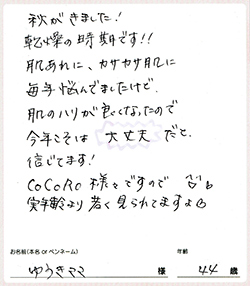 秋がきました！
乾燥の時期です!!
肌あれに、カサカサ肌に
毎年悩んでましたけど、
肌のハリが良くなったので
今年こそは 大丈夫 だと、
信じてます！
CoCoRo 様々ですので
実年齢より若く見られてますよ
お名前(本名 or ペンネーム) 年齢
ゆうきママ 様 44 歳